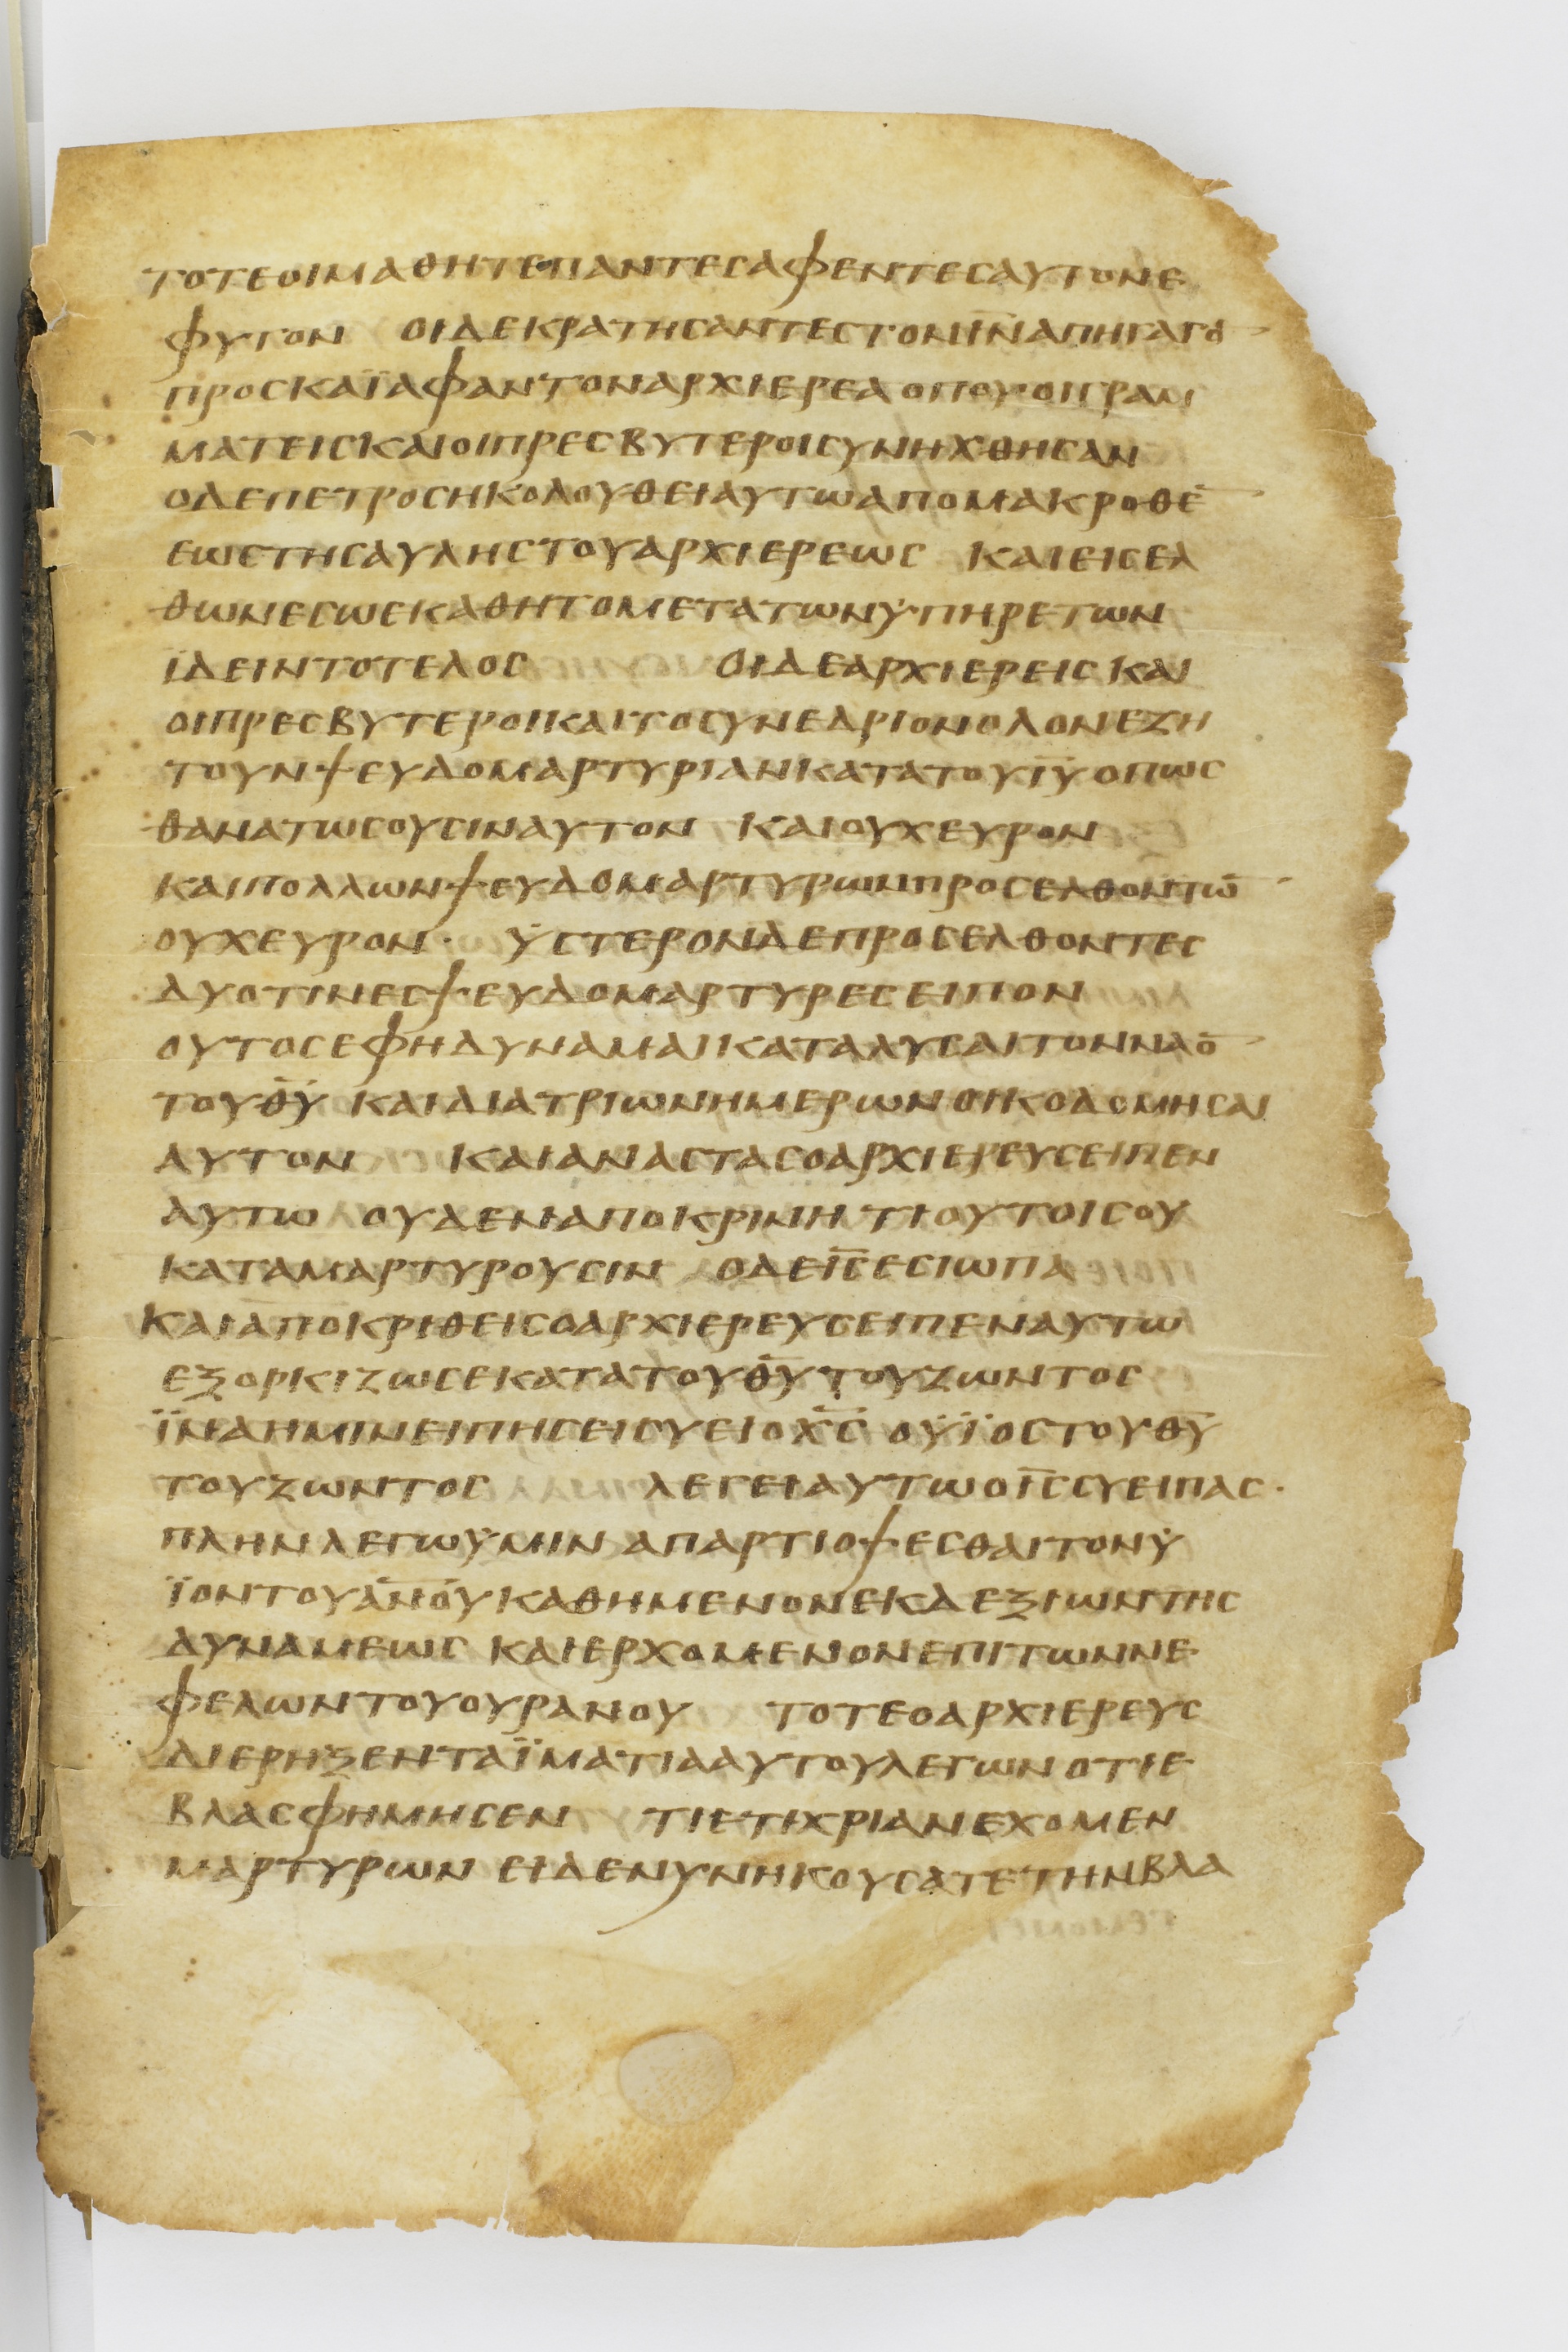 ΤΟΤΕΟΙΜΑΘΗΤΕΠΑΝΤΕCΑΦΕΝΤΕCΑΥΤΟΝΕ
ΦΥΓΟΝ ΟΙΔΕΚΡΑΤΗCΑΝΤΕCΤΟΝΙ̅Ν̅ΑΠΗΓΑΓΟ̅
ΠΡΟCΚΑΪΑΦΑΝΤΟΝΑΡΧΙΕΡΕΑΟΠΟΥΟΙΓΡΑΜ
ΜΑΤΕΙCΚΑΙΟΙΠΡΕCΒΥΤΕΡΟΙCΥΝΗΧΘΗCΑΝ
ΟΔΕΠΕΤΡΟCΗΚΟΛΟΥΘΕΙΑΥΤΩΑΠΟΜΑΚΡΟΘΕ̅
ΕΩCΤΗCΑΥΛΗCΤΟΥΑΡΧΙΕΡΕΩC ΚΑΙΕΙCΕΛ
ΘΩΝΕCΩΕΚΑΘΗΤΟΜΕΤΑΤΩΝΫΠΗΡΕΤΩΝ
ΪΔΕΙΝΤΟΤΕΛΟC ΟΙΔΕΑΡΧΙΕΡΕΙCΚΑΙ
ΟΙΠΡΕCΒΥΤΕΡΟΙΚΑΙΤΟCΥΝΕΔΡΙΟΝΟΛΟΝΕΖΗ
ΤΟΥΝΨΕΥΔΟΜΑΡΤΥΡΙΑΝΚΑΤΑΤΟΥΙ̅Υ̅ΟΠΩC
ΘΑΝΑΤΩCΟΥCΙΝΑΥΤΟΝ ΚΑΙΟΥΧΕΥΡΟΝ
ΚΑΙΠΟΛΛΩΝΨΕΥΔΟΜΑΡΤΥΡΩΝΠΡΟCΕΛΘΟΝΤΩ̅
ΟΥΧΕΥΡΟΝ· ΫCΤΕΡΟΝΔΕΠΡΟCΕΛΘΟΝΤΕC
ΔΥΟΤΙΝΕCΨΕΥΔΟΜΑΡΤΥΡΕCΕΙΠΟΝ
ΟΥΤΟCΕΦΗΔΥΝΑΜΑΙΚΑΤΑΛΥCΑΙΤΟΝΝΑΟ̅
ΤΟΥΘ̅Υ̅ ΚΑΙΔΙΑΤΡΙΩΝΗΜΕΡΩΝΟΙΚΟΔΟΜΗCΑΙ
ΑΥΤΟΝ ΚΑΙΑΝΑCΤΑCΟΑΡΧΙΕΡΕΥCΕΙΠΕΝ
ΑΥΤΩ ΟΥΔΕΝΑΠΟΚΡΙΝΗ ΤΙΟΥΤΟΙCΟΥ
ΚΑΤΑΜΑΡΤΥΡΟΥCΙΝ ΟΔΕΙ̅C̅ΕCΙΩΠΑ
ΚΑΙΑΠΟΚΡΙΘΕΙCΟΑΡΧΙΕΡΕΥCΕΙΠΕΝΑΥΤΩ
ΕΞΟΡΚΙΖΩCΕΚΑΤΑΤΟΥΘ̅Υ̅ΤΟΥΖΩΝΤΟC
ΪΝΑΗΜΙΝΕΙΠΗCΕΙCΥΕΙΟΧ̅C̅ ΟΫΪΟCΤΟΥΘ̅Υ̅
ΤΟΥΖΩΝΤΟC ΛΕΓΕΙΑΥΤΩΟΙ̅C̅CΥΕΙΠΑC·
ΠΛΗΝΛΕΓΩΫΜΙΝ ΑΠΑΡΤΙΟΨΕCΘΑΙΤΟΝΫ
ΪΟΝΤΟΥΑ̅Ν̅Ο̅Υ̅ΚΑΘΗΜΕΝΟΝΕΚΔΕΞΙΩΝΤΗC
ΔΥΝΑΜΕΩC ΚΑΙΕΡΧΟΜΕΝΟΝΕΠΙΤΩΝΝΕ
ΦΕΛΩΝΤΟΥΟΥΡΑΝΟΥ ΤΟΤΕΟΑΡΧΙΕΡΕΥC
ΔΙΕΡΗΞΕΝΤΑΪΜΑΤΙΑΑΥΤΟΥΛΕΓΩΝΟΤΙΕ
ΒΛΑCΦΗΜΗCΕΝ ΤΙΕΤΙΧΡΙΑΝΕΧΟΜΕΝ
ΜΑΡΤΥΡΩΝ ΕΙΔΕΝΥΝΗΚΟΥCΑΤΕΤΗΝΒΛΑ